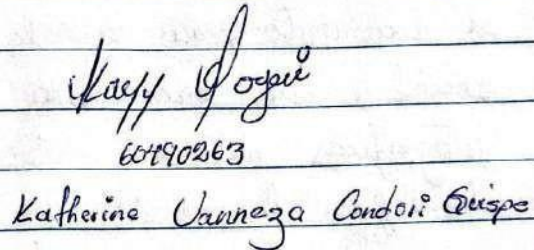 60490263
Katherine Vanneza Condori Quispe